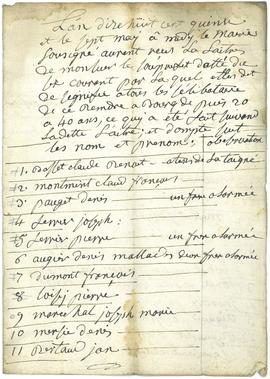 L'an dixe huit cent quinze
et le sept may à midy le Maire
Sousigné aurent reçu la Laitre
de monsieur le souprefet datté du
1er courant par laquel elles dit
de segnifié a tous les selebataire
de ce rendre a Bourg depuis 20
a 40 ans, ce qui a été fait suivend
ladette laitre, et dompte suit
les nom et prenom: observation
1. claude Benoit
2 montmint claud françois
3 pauget denis un frere a larmée
4 Levrier Joseph:
5 Levrier pierre un frere a larmée
6 augier denis mallade deux frere a larmée
7 Dumont françois
8 Loisy pierre
9 marechal joseph marie
10 mersie denis
11 Bertaud jan